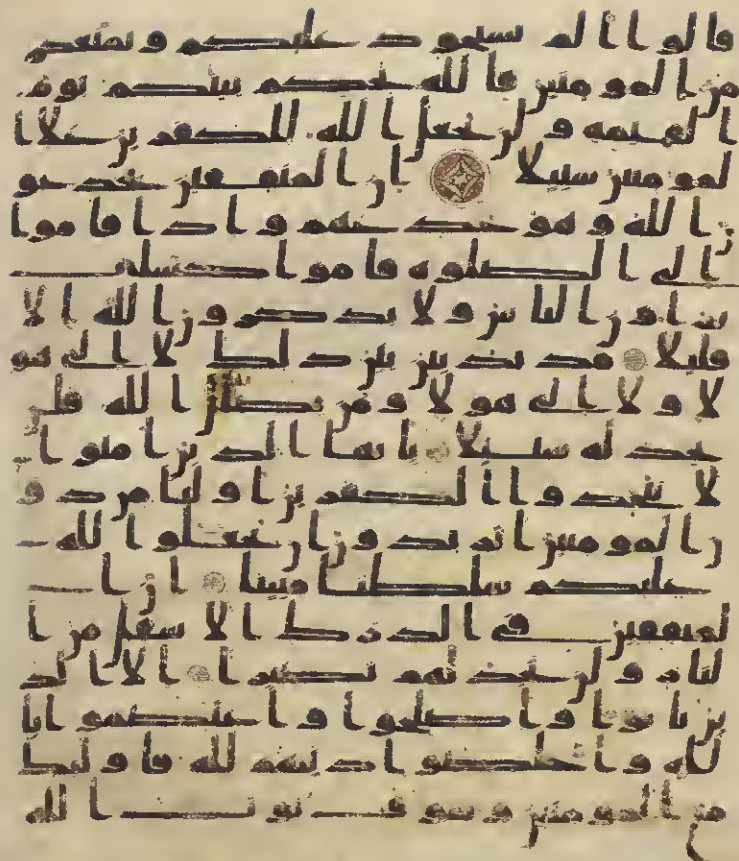 قالوا الم نستحوذ عليكم ونمنعكم
من المومنين فالله يحكم بينكم يوم
القيمة ولن يجعل الله للكفرين علا ا
لمومنين سبيلا ان المنفقين يخدعو
ن الله وهو خدعهم واذا قاموا
الى الصلوة قاموا كسلى
يراون الناس ولا يذكرون الله الا
قليلا مذبذبين بين ذلك لا الى هو
لا ولا الى هولا ومن يضلل الله فلن
تجد له سبيلا يايها الذين امنوا
لا تتخذوا الكفرين اوليا من دو
ن المومنين اتريدون ان تجعلوا لله
عليكم سلطنا مبينا ان ا
لمنفقين في الدرك الا سفل من ا
لنار ولن تجد لهم نصيرا الا الذ
ين تابوا واصلحوا واعتصموا با
لله واخلصوا دينهم لله فاوليك
مع المومنين وسوف يوت الله